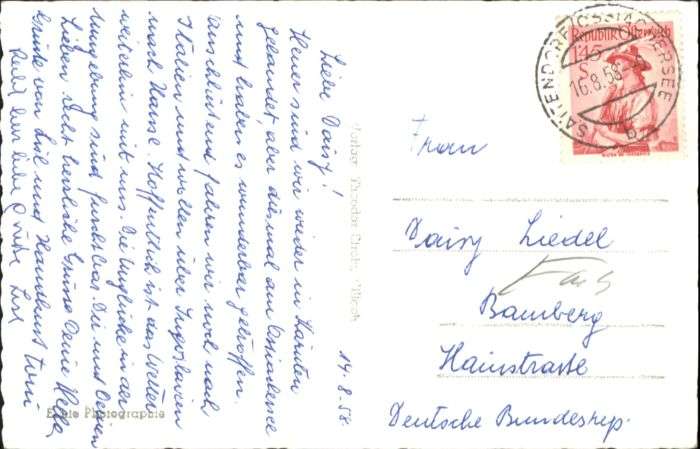 Liebe Daisy!
Heuer sind wir wieder in Kärnten
gelandet, aber diesmal am Ossiachersee
und haben es wunderbar getroffen.
Anschließend fahren wir noch nach
Italien und wollen über Jugoslavien
nach Hause. Hoffentlich ist das Wetter
weiterhin mit uns. Die Unglücke in der
Umgebung sind furchtbar. Dir und Deinen
Lieben recht herzliche Grüsse Deine Hella
Grüsse von und Toni
Recht herzliche Grüsse
14.8.58
Verlag Theodor
Echte Photographie
Republik Österreich
1'45
S
SATTENDORF (OSSIACHERSEE)
16.8.58
b
Frau
Daisy Liedel
Bamberg
Hainstrasse
Deutsche Bundesrep.